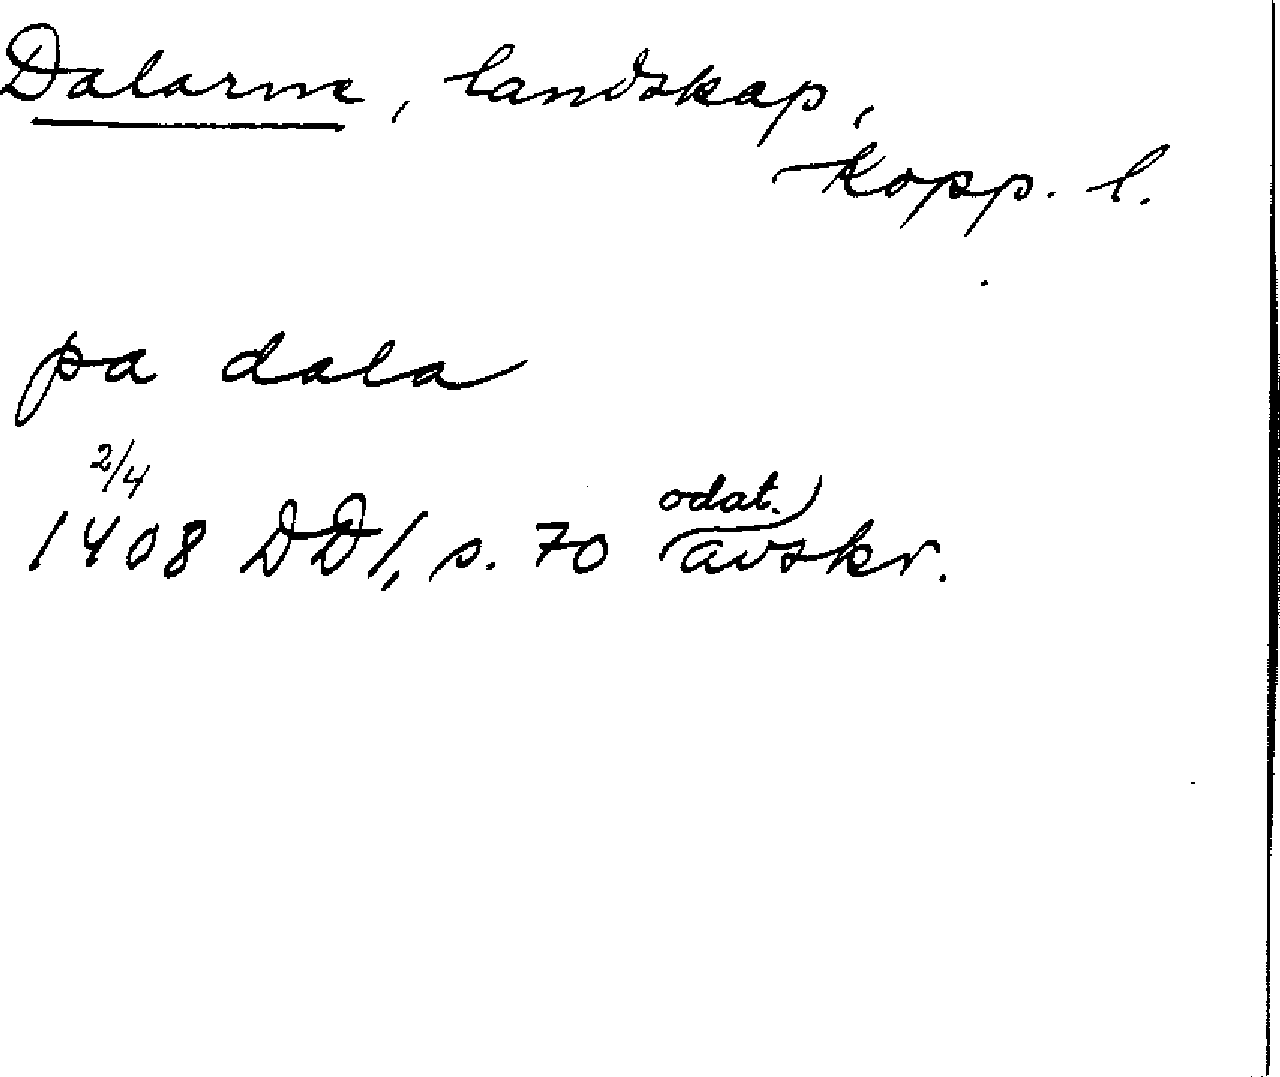 Dalarne, landskap,
Kopp. l.
pa dala
2/4
1408 DD1, s. 70 odat. avskr.